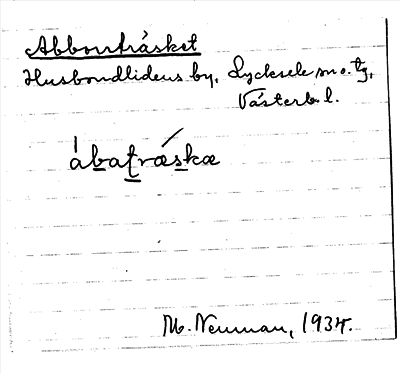 Abborrträsket
Husbondlidens by, Lycksele sn o. tg,
Västerb. l.
ábatræskæ
M. Neuman, 1934.